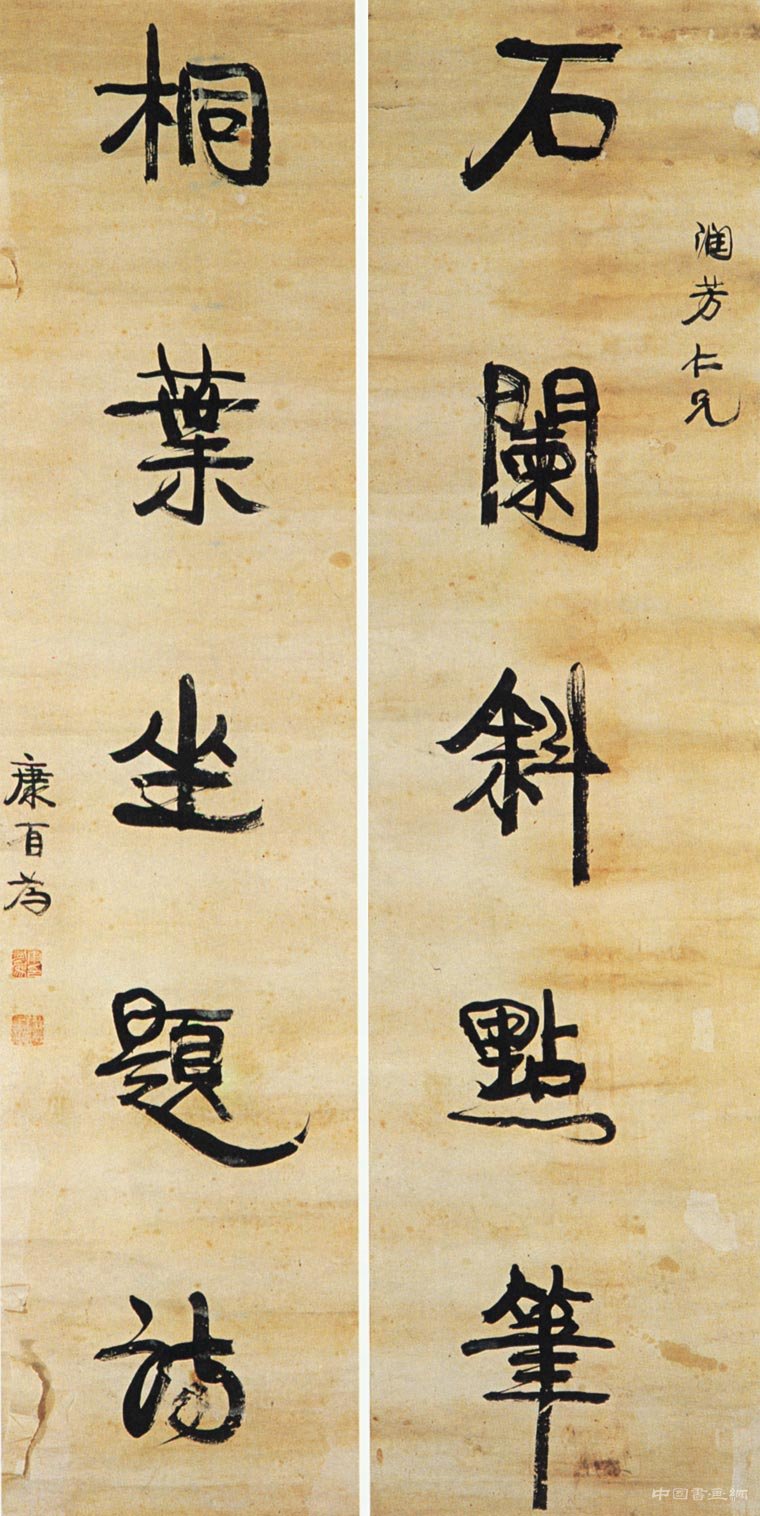 石闌斜點筆
潤芳仁兄
桐葉坐題詩
康有為
中国書画網